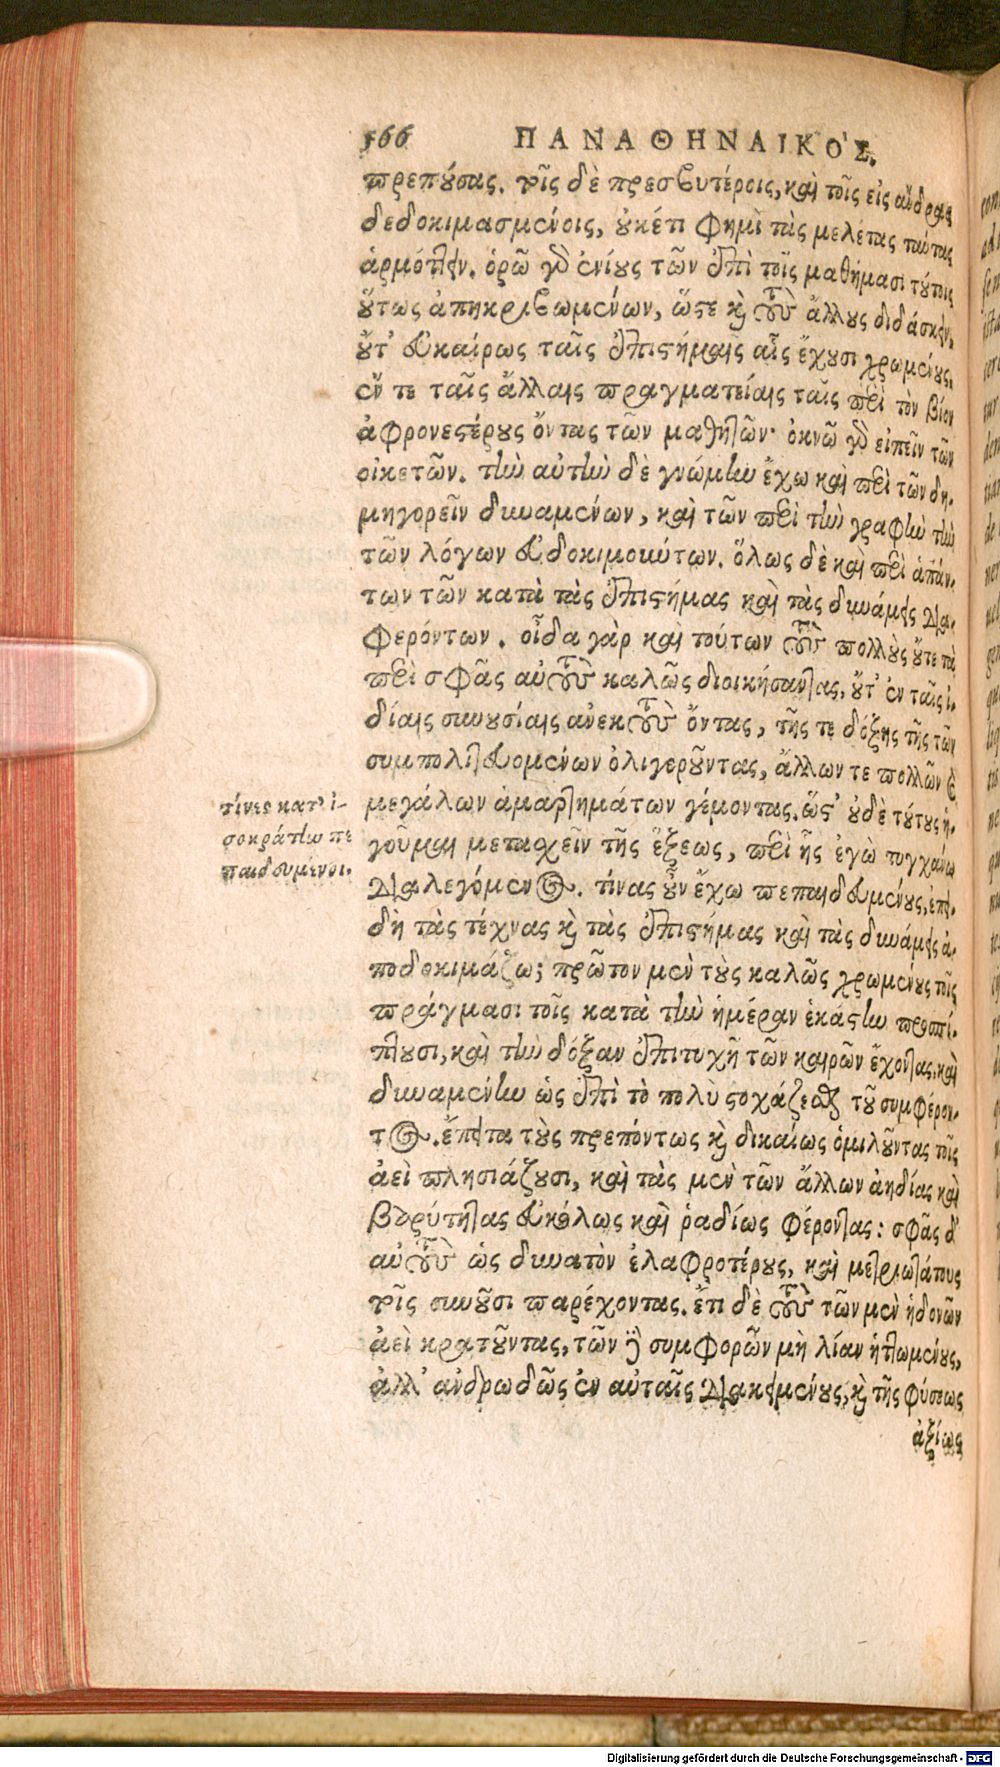 566 ΠΑΝΑΘΗΝΑΙΚΟ'Σ.
πρεπούσας. τοῖς δὲ πρεσβυτέροις, καὶ τοῖς εἰς ἄνδρας
δεδοκιμασμένοις, οὐκέτι φημὶ τὰς μελέτας ταύτας
ἁρμόττειν. ὁρῶ γὸ ἐνίους τῶν ἐπὶ τοῖς μαθήμασι τούτοις
οὕτως ἀπηκριβωμένων, ὥστε καὶ τοὺς ἄλλους διδάσκειν,
οὔτ' εὐκαίρως ταῖς ἐπιστήμαις αἷς ἔχουσι χρωμένους,
ἔν τε ταῖς ἄλλαις πραγματείαις ταῖς περὶ τὸν βίον
ἀφρονεστέρους ὄντας τῶν μαθητῶν· ὀκνῶ γὸ εἰπεῖν τῶν
οἰκετῶν. τὴν αὐτὴν δὲ γνώμην ἔχω καὶ περὶ τῶν δη-
μηγορεῖν δυναμένων, καὶ τῶν περὶ τὴν γραφὴν τὴν
τῶν λόγων εὐδοκιμούντων. ὅλως δὲ καὶ περὶ ἁπάν-
των τῶν κατὰ τὰς ἐπιστήμας καὶ τὰς δυνάμεις δια-
φερόντων. οἶδα γὰρ καὶ τούτων τοὺς πολλοὺς οὔτε τὰ
περὶ σφᾶς αὐτοὺς καλῶς διοικήσαντας, οὔτ' ἐν ταῖς ἰ-
δίαις συνουσίαις ἀνεκτοὺς ὄντας, τῆς τε δόξης τῆς τῶν
συμπολιτευομένων ὀλιγωροῦντας, ἄλλων τε πολλῶν καὶ
μεγάλων ἁμαρτημάτων γέμοντας. ὥστ' οὐδὲ τούτους ἡ-
γοῦμαι μετασχεῖν τῆς ἕξεως, περὶ ἧς ἐγὼ τυγχάνω
διαλεγόμενος. τίνας οὖν ἔχω πεπαιδευμένους, ἐπει-
δὴ τὰς τέχνας καὶ τὰς ἐπιστήμας καὶ τὰς δυνάμεις ἀ-
ποδοκιμάζω; πρῶτον μὲν τοὺς καλῶς χρωμένους τοῖς
πράγμασι τοῖς κατὰ τὴν ἡμέραν ἑκάστην προσπί-
πτουσι, καὶ τὴν δόξαν ἐπιτυχῆ τῶν καιρῶν ἔχοντας, καὶ
δυναμένην ὡς ἐπὶ τὸ πολὺ στοχάζεσθαι τοῦ συμφέρον-
τος. ἔπειτα τοὺς πρεπόντως καὶ δικαίως ὁμιλοῦντας τοῖς
ἀεὶ πλησιάζουσι, καὶ τὰς μὲν τῶν ἄλλων ἀηδίας καὶ
βαρύτητας εὐκόλως καὶ ῥαδίως φέροντας: σφᾶς δ'
αὐτοὺς ὡς δυνατὸν ἐλαφροτέρους, καὶ μετριωτάτους
τοῖς συνοῦσι παρέχοντας. ἔτι δὲ τοὺς τῶν μὲν ἡδονῶν
ἀεὶ κρατοῦντας, τῶν δὲ συμφορῶν μὴ λίαν ἡττωμένους,
ἀλλ' ἀνδρωδῶς ἐν αὐταῖς διακειμένους, καὶ τῆς φύσεως
ἀξίως
τίνες κατ' Ἰ-
σοκράτην πε
παιδευμένοι.